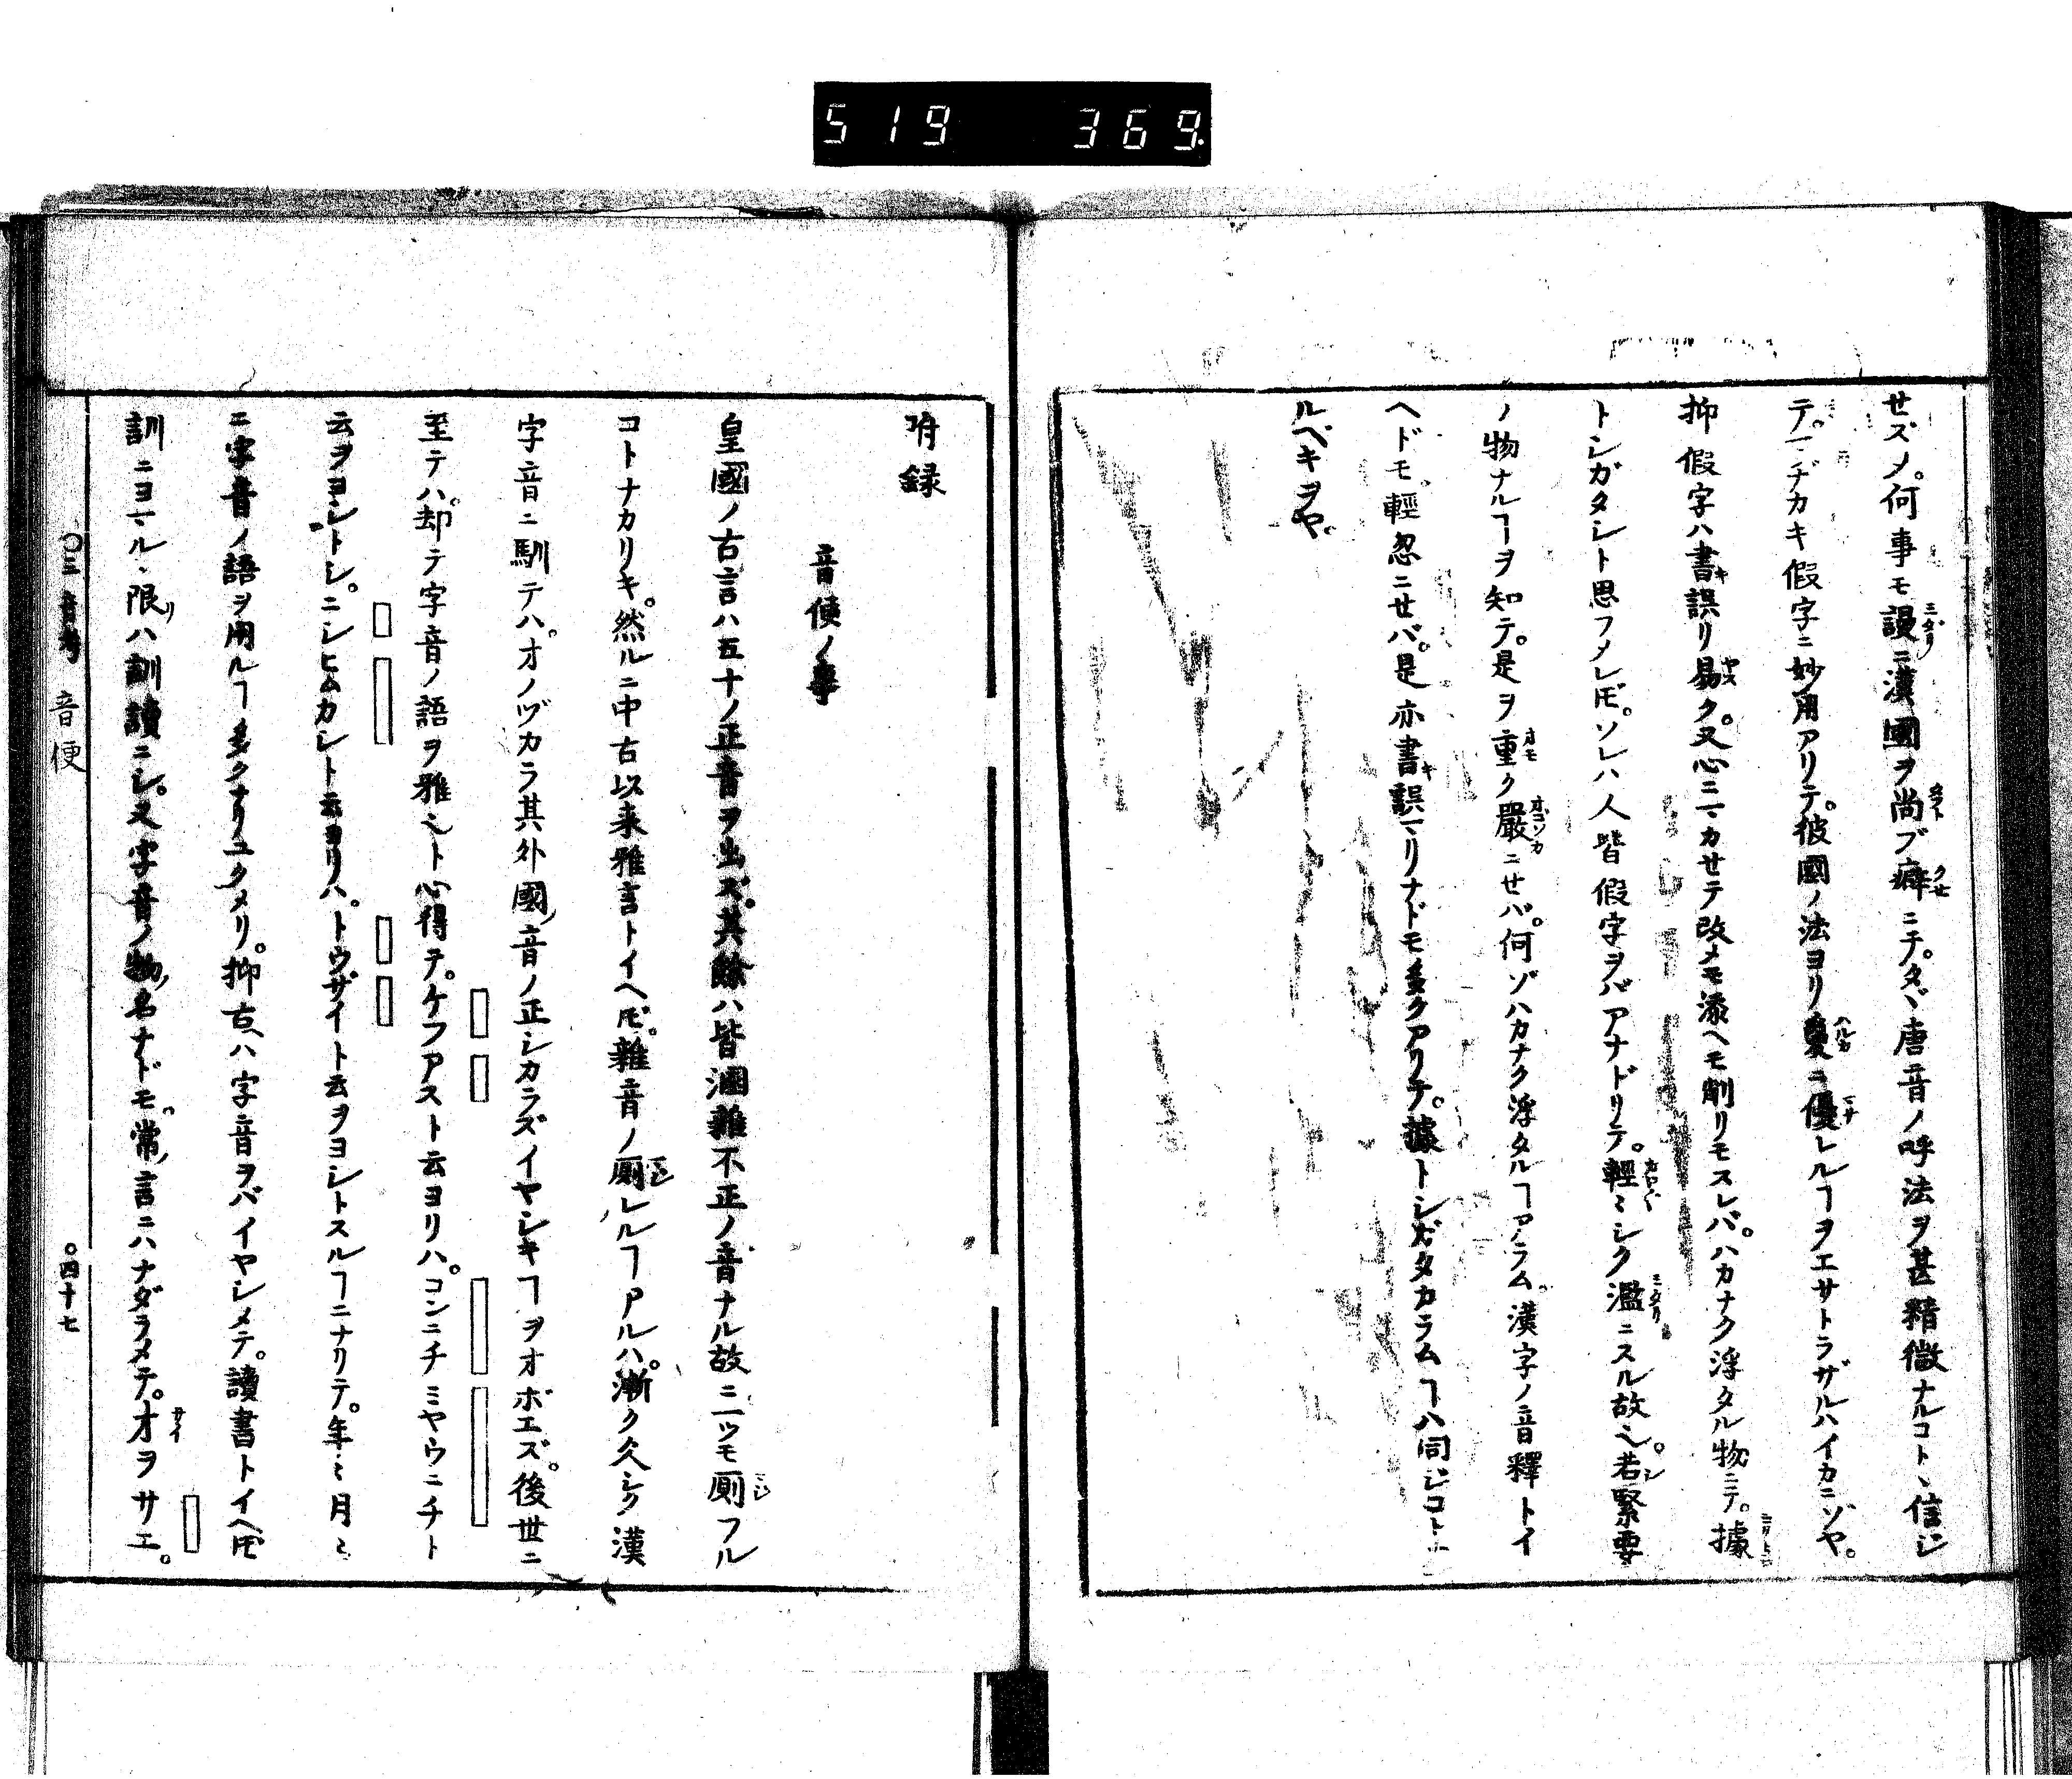 519 369
セズメ。何事モ謾ニ漢國ヲ尚ブ癖ニテ。タヾ唐音ノ呼法ヲ甚精微ナルコトヽ信ジ
テ。マヂカキ假字ニ妙用アリテ。彼國ノ法ヨリ敻ニ優レルヿヲエサトラザルハイカニゾヤ。
抑假字ハ書誤リ易ク。又心ニマカセテ改メモ添ヘモ削リモスレバ。ハカナク浮タル物ニテ。據
トシガタシト思フメレ𪜈。ソレハ人皆假字ヲバアナドリテ。輕〻シク濫ニスル故也。若緊要
ノ物ナルヿヲ知テ。是ヲ重ク嚴ニセバ。何ゾハカナク浮タルヿアラム。漢字ノ音釋トイ
ヘドモ輕忽ニセバ。是亦書誤マリナドモ多クアリテ。據トシガタカラムヿハ同ジコトナ
ルベキヲヤ。
附録
音便ノ事
皇國ノ古言ハ五十ノ正音ヲ出ズ。其餘ハ皆溷雜不正ノ音ナル故ニ一ツモ厠フル
コトナカリキ。然ルニ中古以来雅言トイヘ𪜈。雜音ノ厠レルヿアルハ。漸ク久シク漢
字音ニ馴テハ。オノヅカラ其外國ノ音ノ正シカラズイヤシキヿヲオボエズ。後世ニ
至テハ。却テ字音ノ語ヲ雅也ト心得テ。ケフアスト云ヨリハ。コンニチミヤウニチト
云ヲヨシトシ。ニシヒムカシト云ヨリハ。トウザイト云ヲヨシトスルヿニナリテ。年〻月〻
ニ字音ノ語ヲ用ルヿ多クナリユクメリ。抑古ヘハ字音ヲバイヤシメテ。讀書トイヘ𪜈
訓ニヨマルヽ限リハ訓讀ニシ。又字音ノ物ノ名ナドモ。常ノ言ニハナダラメテ。才ヲサエ。
〇三音考 音便 〇四十七